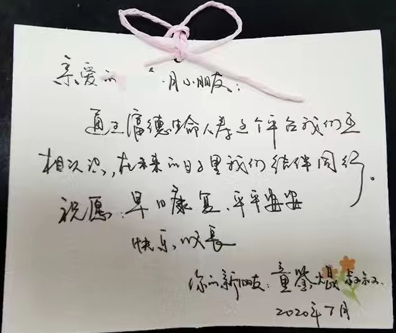 亲爱的 月小朋友：
通过富德生命人寿这个平台我们互
相认识，在未来的日子里我们结伴同行。
祝愿：早日康复、平平安安
快乐成长
你的新朋友：童
2020年7月